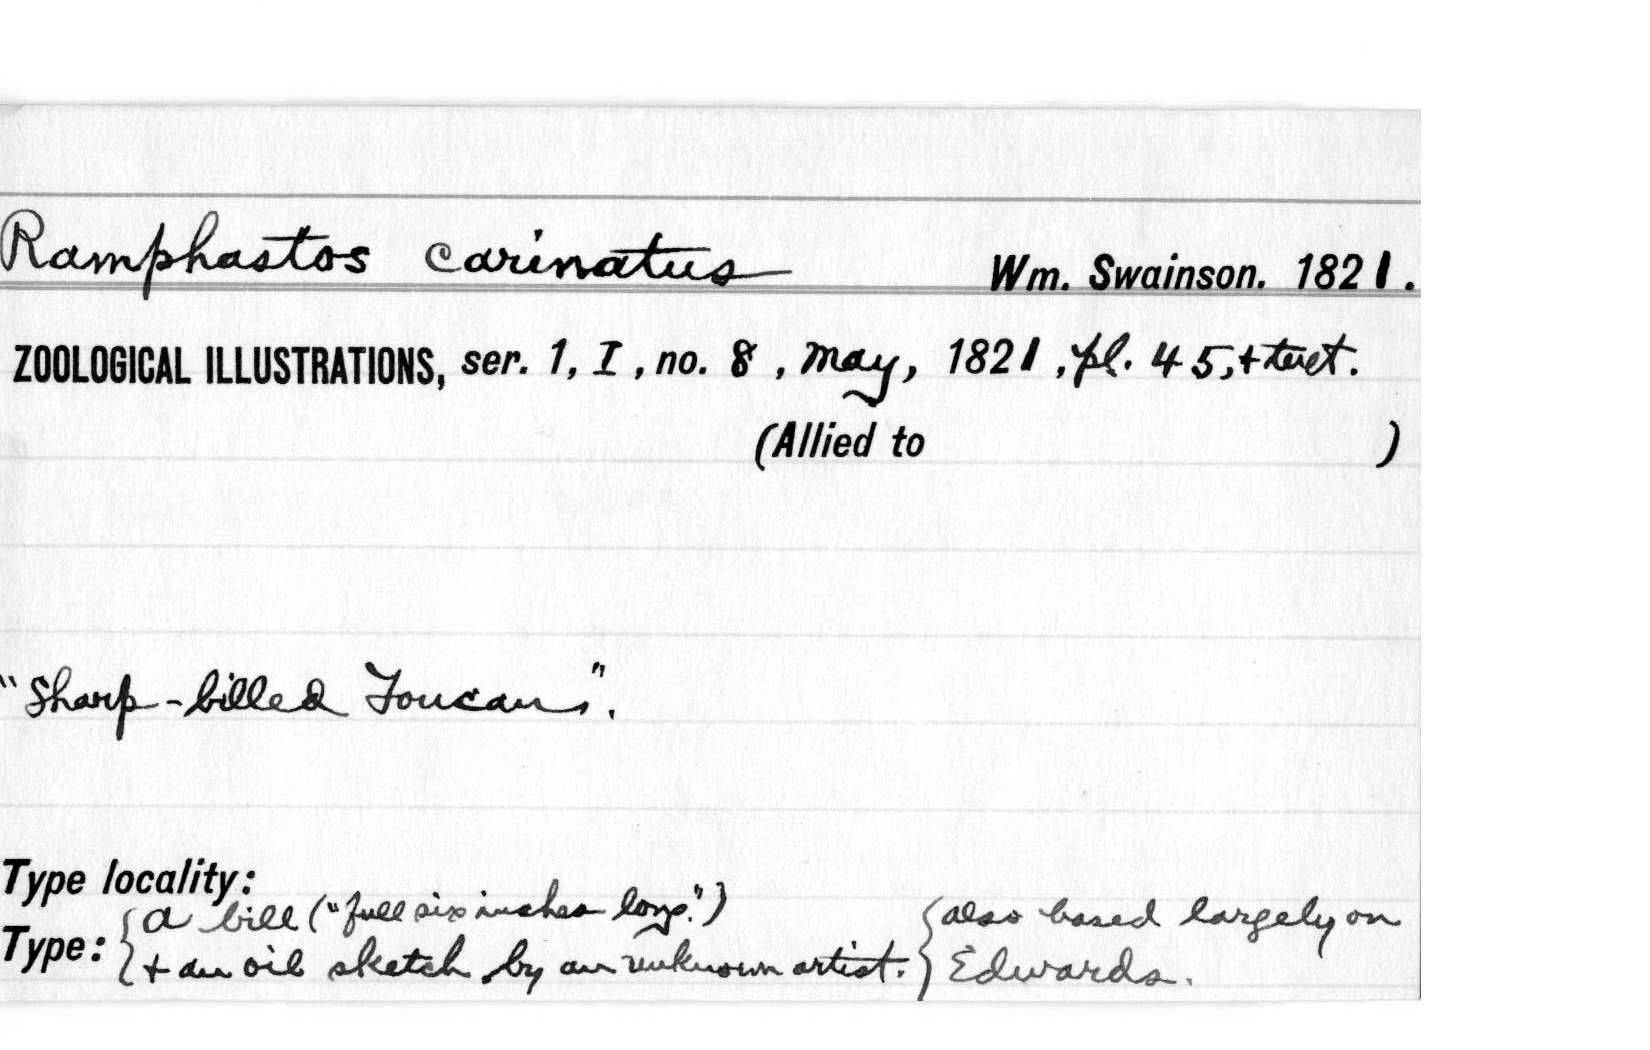 Ramphastos carinatus Wm. Swainson. 1821.
ZOOLOGICAL ILLUSTRATIONS, ser. 1, I, no. 8, May, 1821, pl. 45, + text.
(Allied to )
"Sharp-billed Toucan".
Type locality:
Type: { a bill ("full six inches long.") { also based largely on
+ an oil sketch by an unknown artist. Edwards.